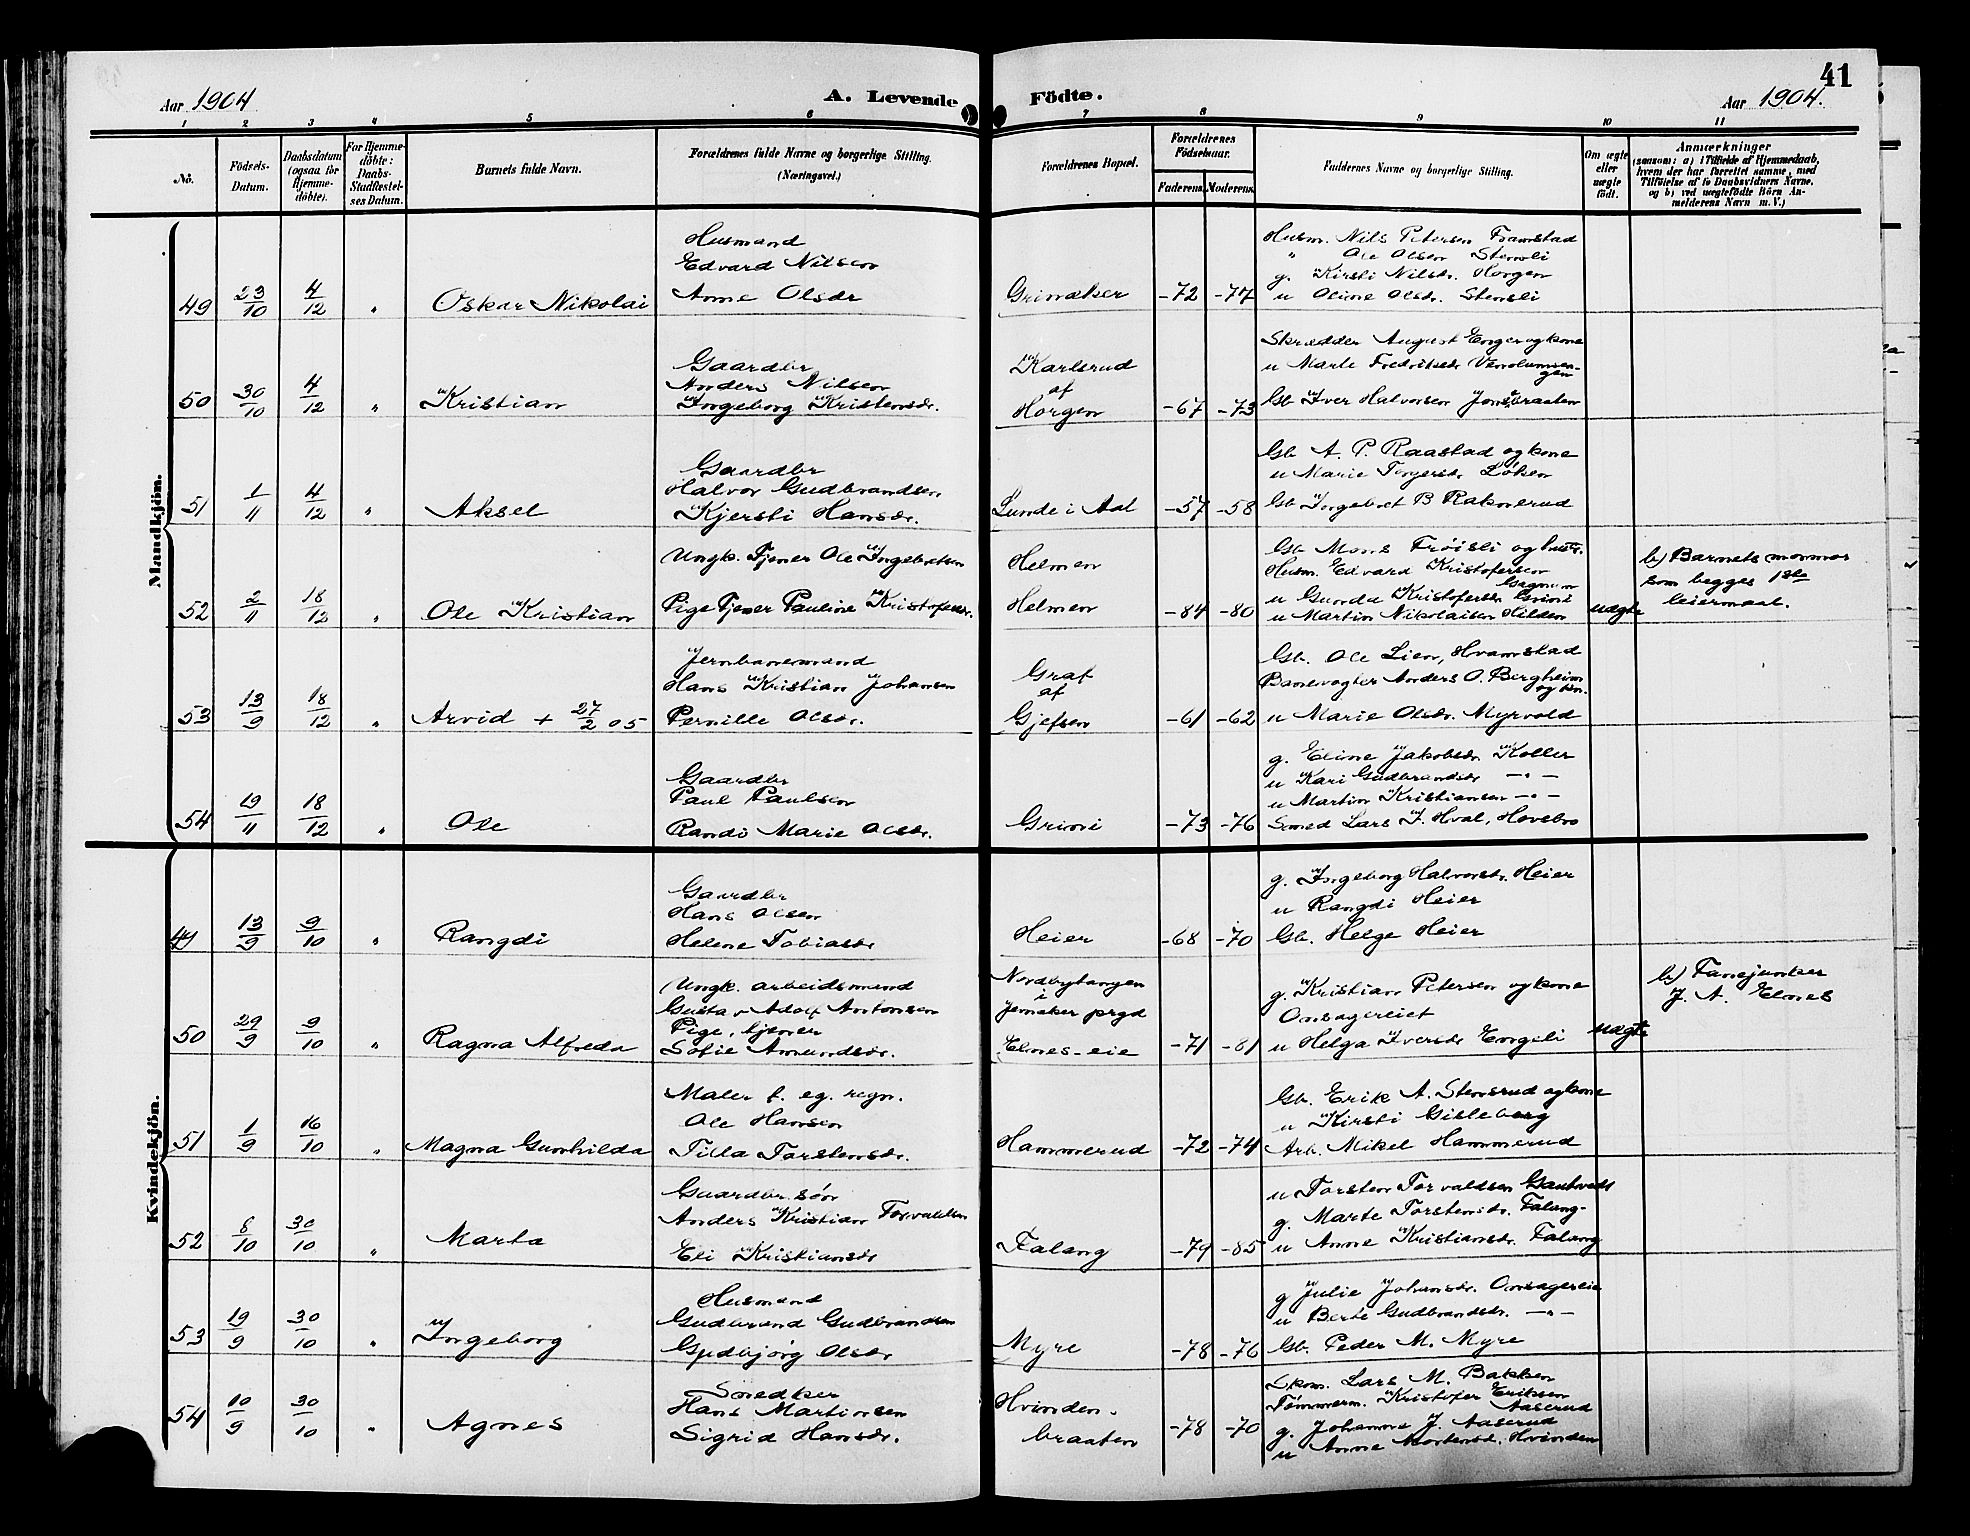 41
Aar 1904
A. Levende
Födte.
Aar 1904.
1 2 3 4 5 6 7 8 9 10 11
No.
Födsels-
Datum.
Daabsdatum
(ogsaa for
Hjemme-
döbte).
For Hjemme-
döbte:
Daabs-
Stadfæstel-
ses Datum.
Barnets fulde Navn.
Forældrenes fulde Navne og borgerlige Stilling.
(Næringsvei.)
Forældrenes Bopæl.
Forældrenes
Födselsaar.
Faderens. Moderens.
Faddernes Navne og borgerlige Stilling.
Om ægte
eller
uægte
födt.
Anmærkninger
(saasom: a) i Tilfælde af Hjemmedaab,
hvem der har forrettet samme, med
Tilföielse af to Daabsvidners Navne,
og b) ved uægtefödte Börn An-
melderens Navn m. V.)
Mandkjön.
49 23/10 4/12 " Oskar Nikolai
Husmand
Edvard Nilsen
Anne Olsdr
Grinaker -72 -77
Husm. Nils Petersen Framstad
" Ole Olsen Stensli
g. Kirsti Nilsdr. Horgen
u Oline Olsdr. Stensli
50 30/10 4/12 " Kristian
Gaardbr
Anders Nilsen
Ingeborg Kristensdr.
Karlsrud
af
Horgen -67 -73
Skrædder August Enger og kone
u Marte Fredriksdr.
Gb Iver Halvorsen Jonsbraaten
51 1/11 4/12 " Aksel
Gaardbr
Halvor Gudbrandsen
Kjersti Hansdr.
Lunde i Aal -57 -58
Gb A. P. Raastad og kone
u Marie Torgersdr Løken
Gb Ingebret B Raknerud
52 2/11 18/12 " Ole Kristian
Ungk. Tjener Ole Ingebretsen
Pige Tjener Pauline Kristofersdr.
Helmen
Helmen -84 -80
Gb Mons Frøisli og hustr.
Husm. Edvard Kristofersen
u Gunda Kristofersdr Grini
u Martin Nikolaisen Hilden
uægte
b) Barnets mormor
som begges 1ste
leiermaal.
53 13/9 18/12 " Arvid + 27/2 05
Jernbanemand
Hans Kristian Johansen
Pernille Olsdr.
Graf
af
Gjefsen -61 -62
Gb. Ole Lien, Hvamstad
Banevogter Anders O. Bergheim
og kon.
u Marie Olsdr. Myrvold
54 19/11 18/12 " Ole
Gaardbr
Paul Paulsen
Randi Marie Olsdr.
Grini -73 -76
g. Eline Jakobsdr Koller
u Kari Gudbrandsdr — " —
u Martin Kristiansen — " —
Smed Lars J. Hval, Hovsbro
Kvindekjön.
49 13/9 9/10 " Rangdi
Gaardbr
Hans Olsen
Helene Tobiasdr
Heier -68 -70
g. Ingeborg Halvorsdr. Heier
u Rangdi Heier
Gb. Helge Heier
50 29/9 9/10 " Ragna Alfreda
Ungk. arbeidsmand
Gustav Adolf Antonsen
Pige, tjener
Sofie Amundsdr.
Nordbytangen
i
Jevnaker prgd
Elnes-eie -71 -81
g. Kristian Petersen og kone
Onsagereiet
u Helga Iversdr Engeli
uægte
b) Fanejunker
J. A. Elnes
51 1/9 16/10 " Magna Gunhilda
Maler f. eg. regn.
Ole Hansen
Tilla Torstensdr.
Hammerud -72 -74
Gb. Erik A. Stensrud og kone
u Kirsti Gisleberg
Arb. Mikel Hammerud
52 8/10 30/10 " Marta
Gaardbr. søn
Anders Kristian Torvaldsen
Eli Kristiansdr
Falang -79 -85
u Torsten Torvaldsen
g. Marte Torstensdr. Falang-
u Anne Kristiansdr. Falang
53 19/9 30/10 " Ingeborg
Husmand
Gudbrand Gudbrandsen
Gudbjørg Olsdr
Myre -78 -76
g Julie Johansdr. Onsagereie
u Berte Gudbrandsdr. — " —
Gb. Peder M. Myre
54 10/9 30/10 " Agnes
Snedker
Hans Martinsen
Sigrid Hansdr.
Hvinden-
braaten -78 -70
Skom. Lars M. Bakken
Tømmerm. Kristofer Eriksen
Aaserud
g. Johanne J. Aaserud
u Anne Mortensd. Hvinden